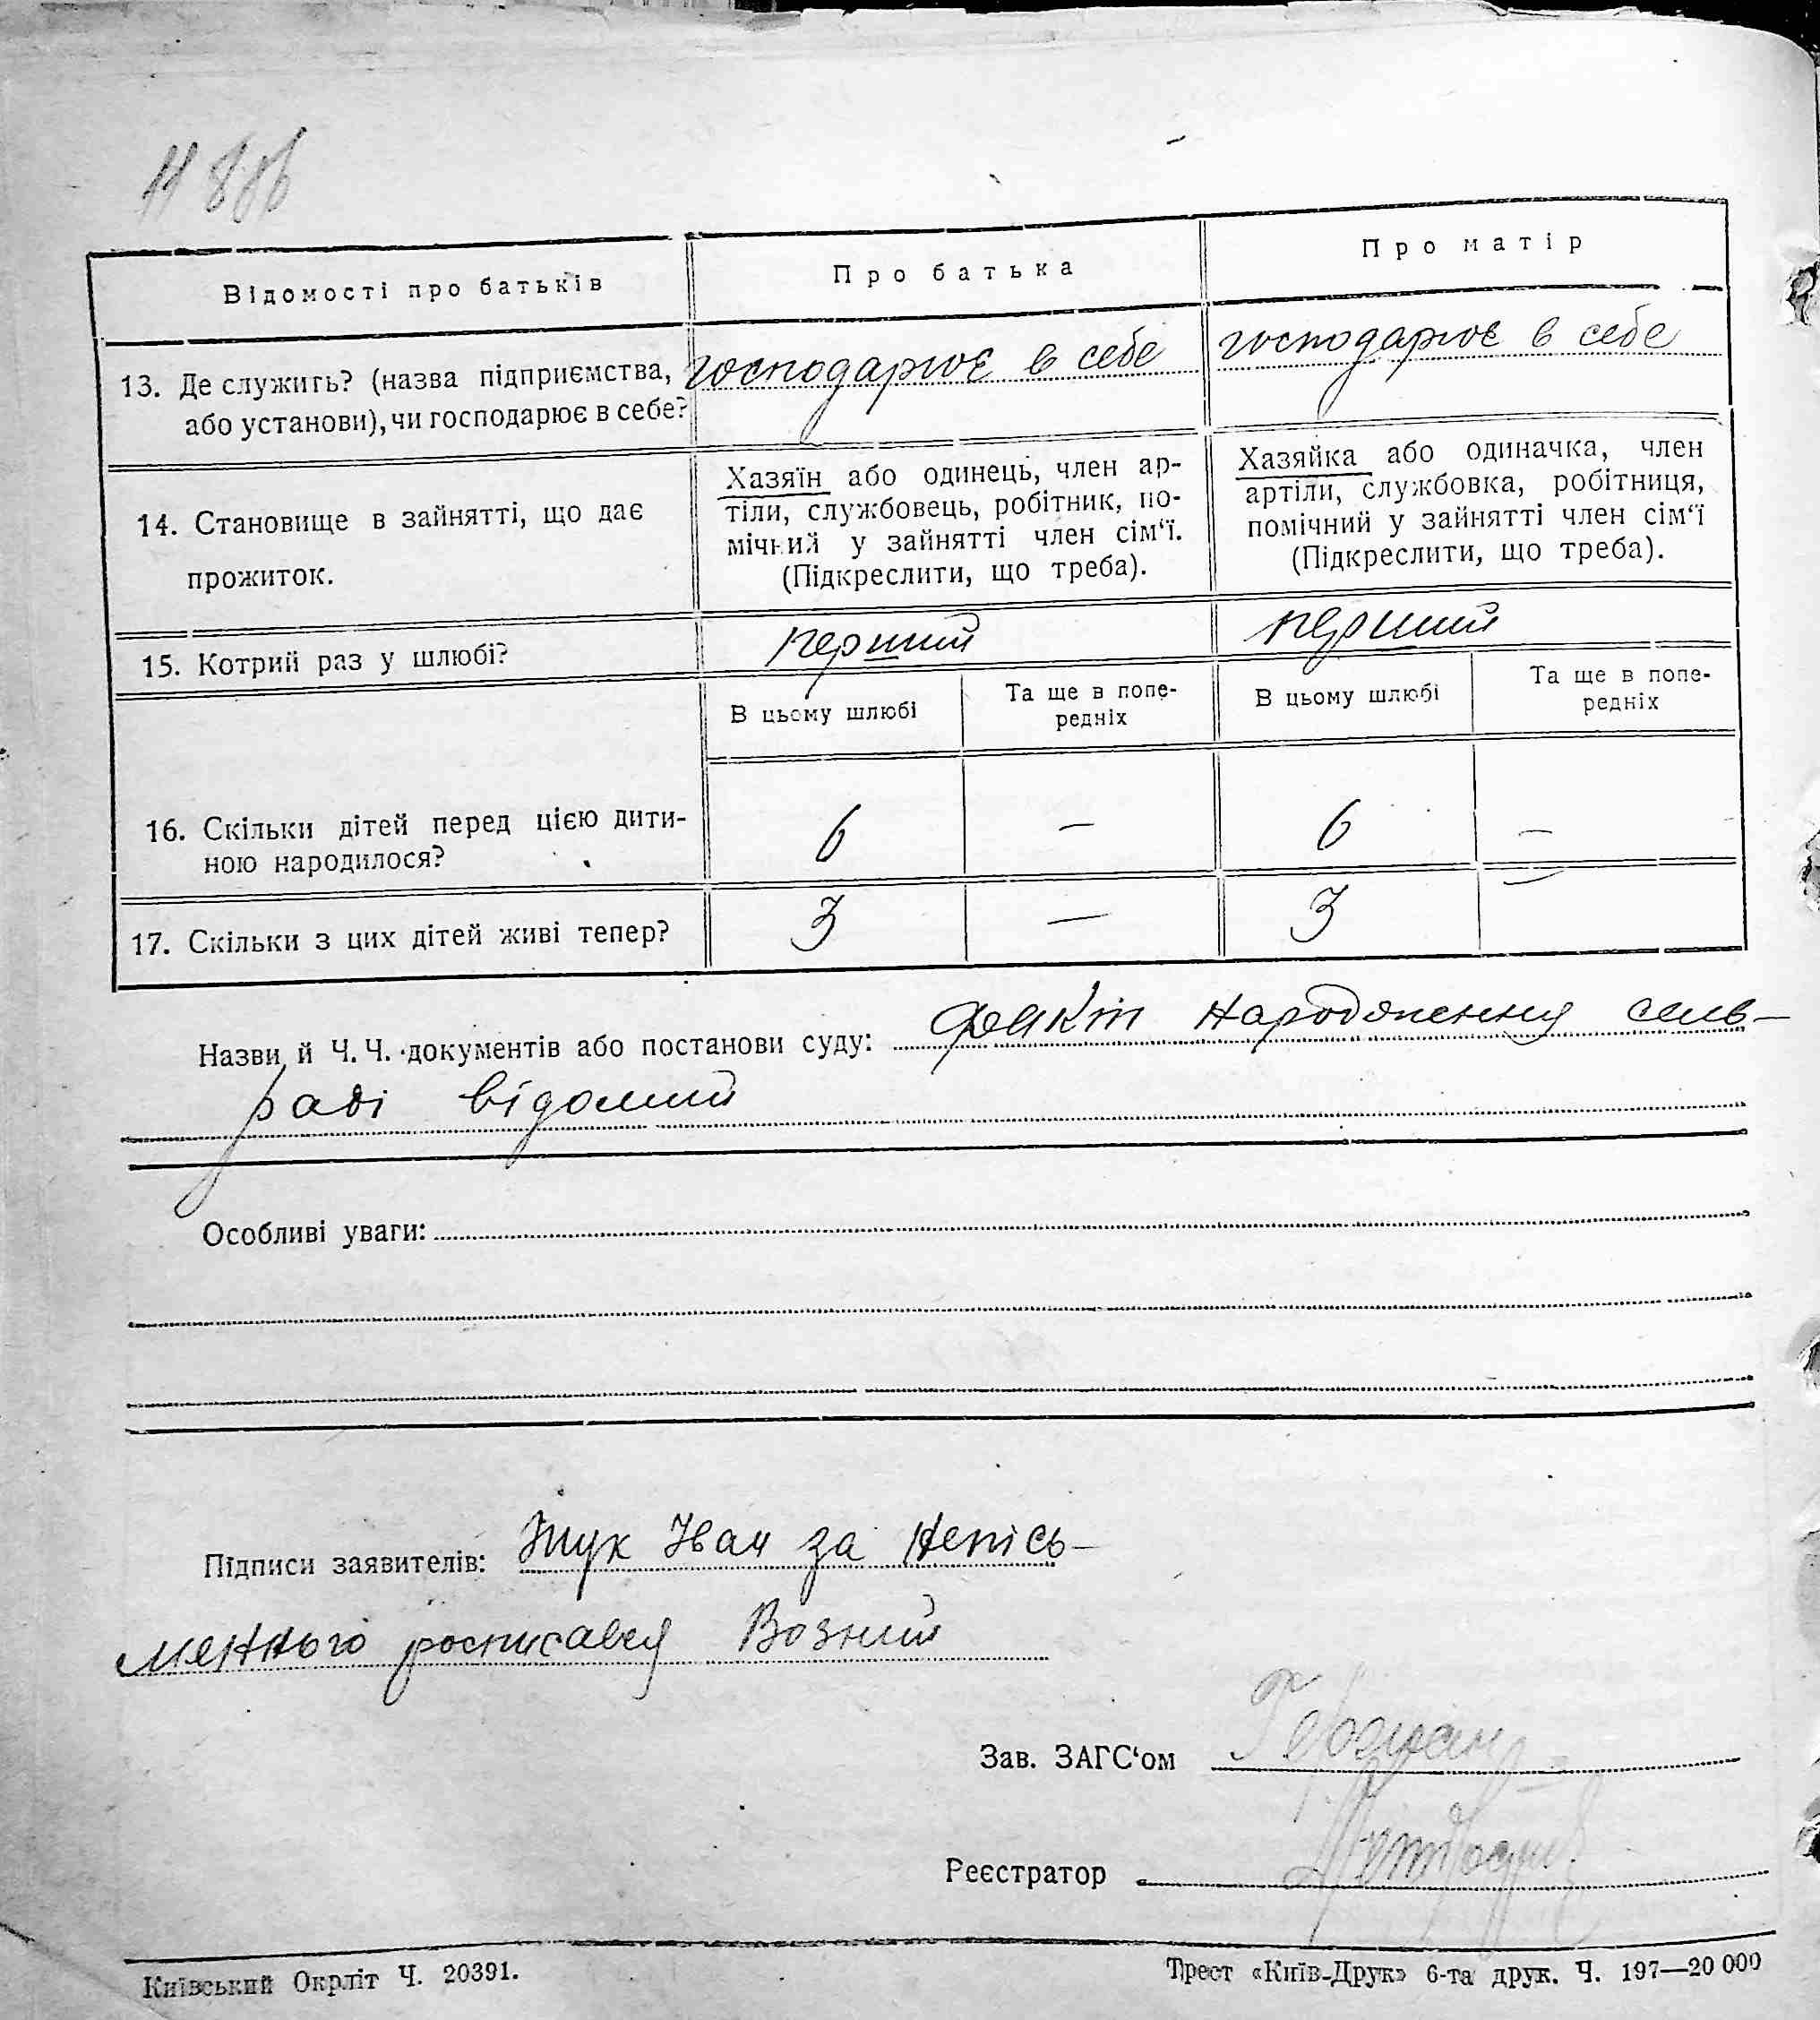 Відомості про батьків
Про батька
Про матір
13. Де служить? (назва підприємства, або установи), чи господарює в себе?
господарює в себе
господарює в себе
14. Становище в зайнятті, що дає прожиток.
Хазяїн або одинець, член ар-
тіли, службовець, робітник, по-
мічний у зайнятті член сім‘ї.
(Підкреслити, що треба).
Хазяйка або одиначка, член
артіли, службовка, робітниця,
помічний у зайнятті член сім‘ї
(Підкреслити, що треба).
15. Котрий раз у шлюбі?
перший
перший
В цьому шлюбі
Та ще в попе-
редніх
В цьому шлюбі
Та ще в попе-
редніх
16. Скільки дітей перед цією дити-
ною народилося?
6 — 6 —
17. Скільки з цих дітей живі тепер?
3 — 3 —
Назви й Ч. Ч. документів або постанови суду: факт народження сель-
раді відомий
Особливі уваги:
Підписи заявителів: Жук Іван за непісь-
менного росписався Возний
Зав. ЗАГС‘ом
Реєстратор
Київський Окрліт Ч. 20391.
Трест «Київ-Друк» 6-та друк. Ч. 197—20 000